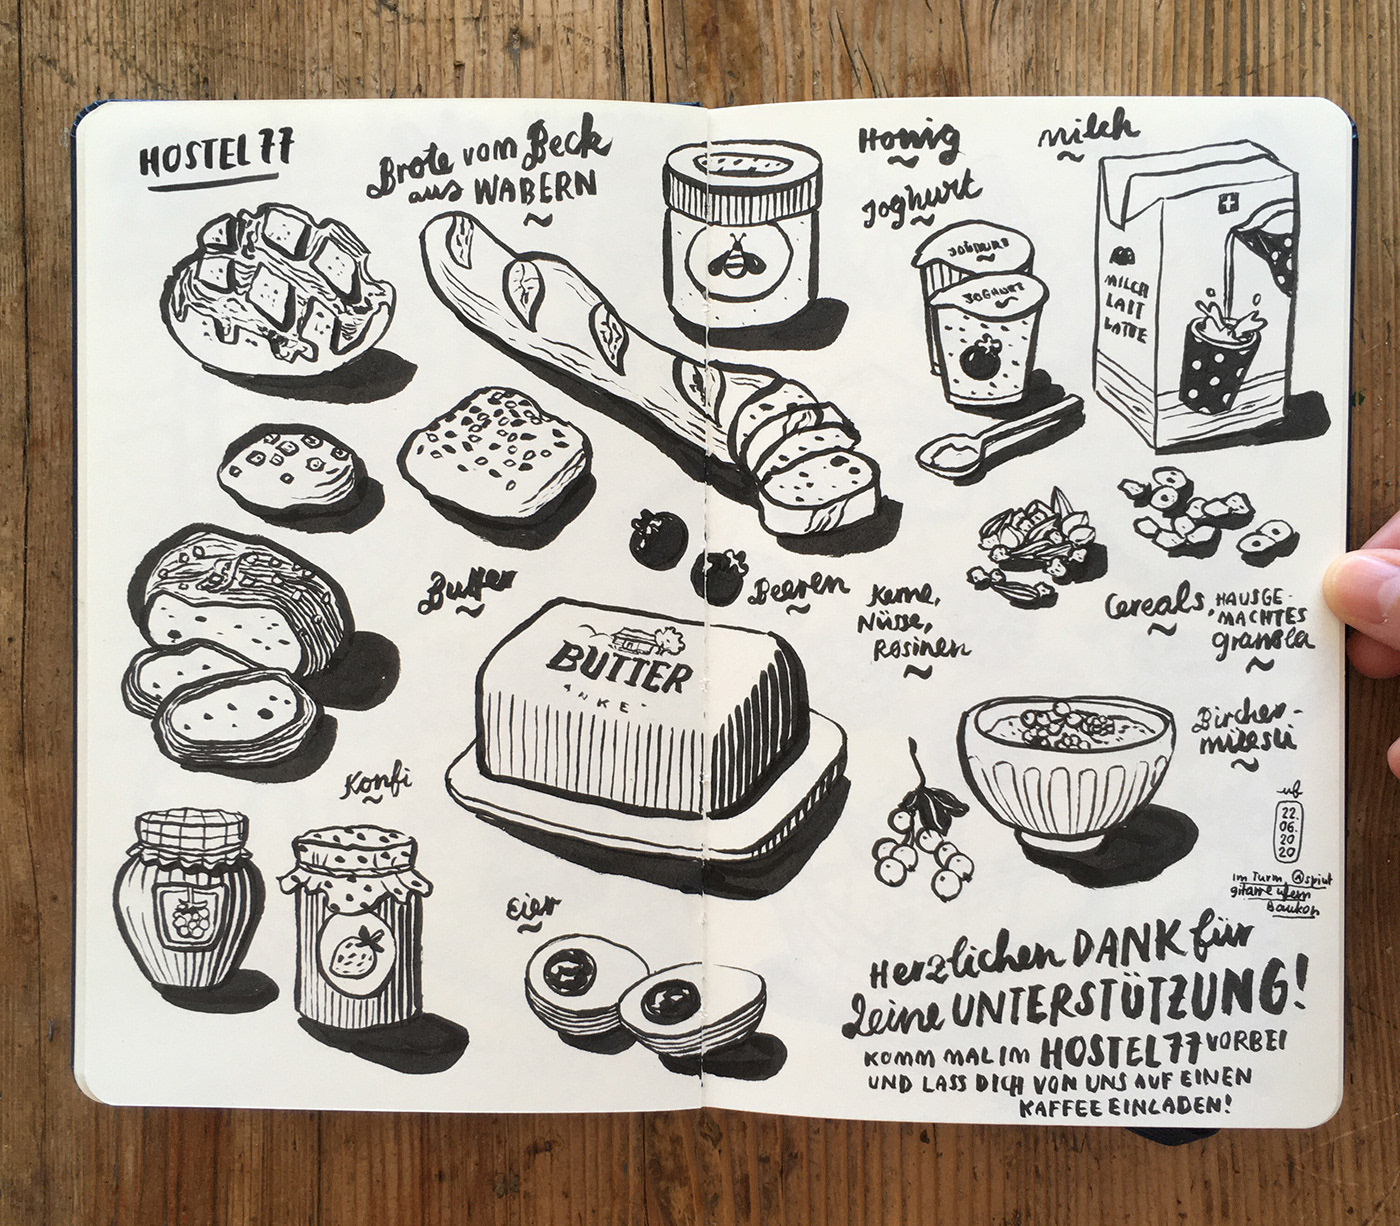 HOSTEL 77
Brote vom Beck
aus WABERN
Honig
Joghurt
Milch
JOGHURT
JOGHURT
MILCH
LAIT
LATTE
Butter
BUTTER
ANKE
Beeren
Kerne,
Nüsse,
Rosinen
Cereals,
HAUSGE-
MACHTES
Granola
Bircher-
müesli
Konfi
Eier
ub
22.
06.
20
20
im Turm
gitarre ufem
Herzlichen DANK für
Deine UNTERSTÜTZUNG!
KOMM MAL IM HOSTEL 77 VORBEI
UND LASS DICH VON UNS AUF EINEN
KAFFEE EINLADEN!